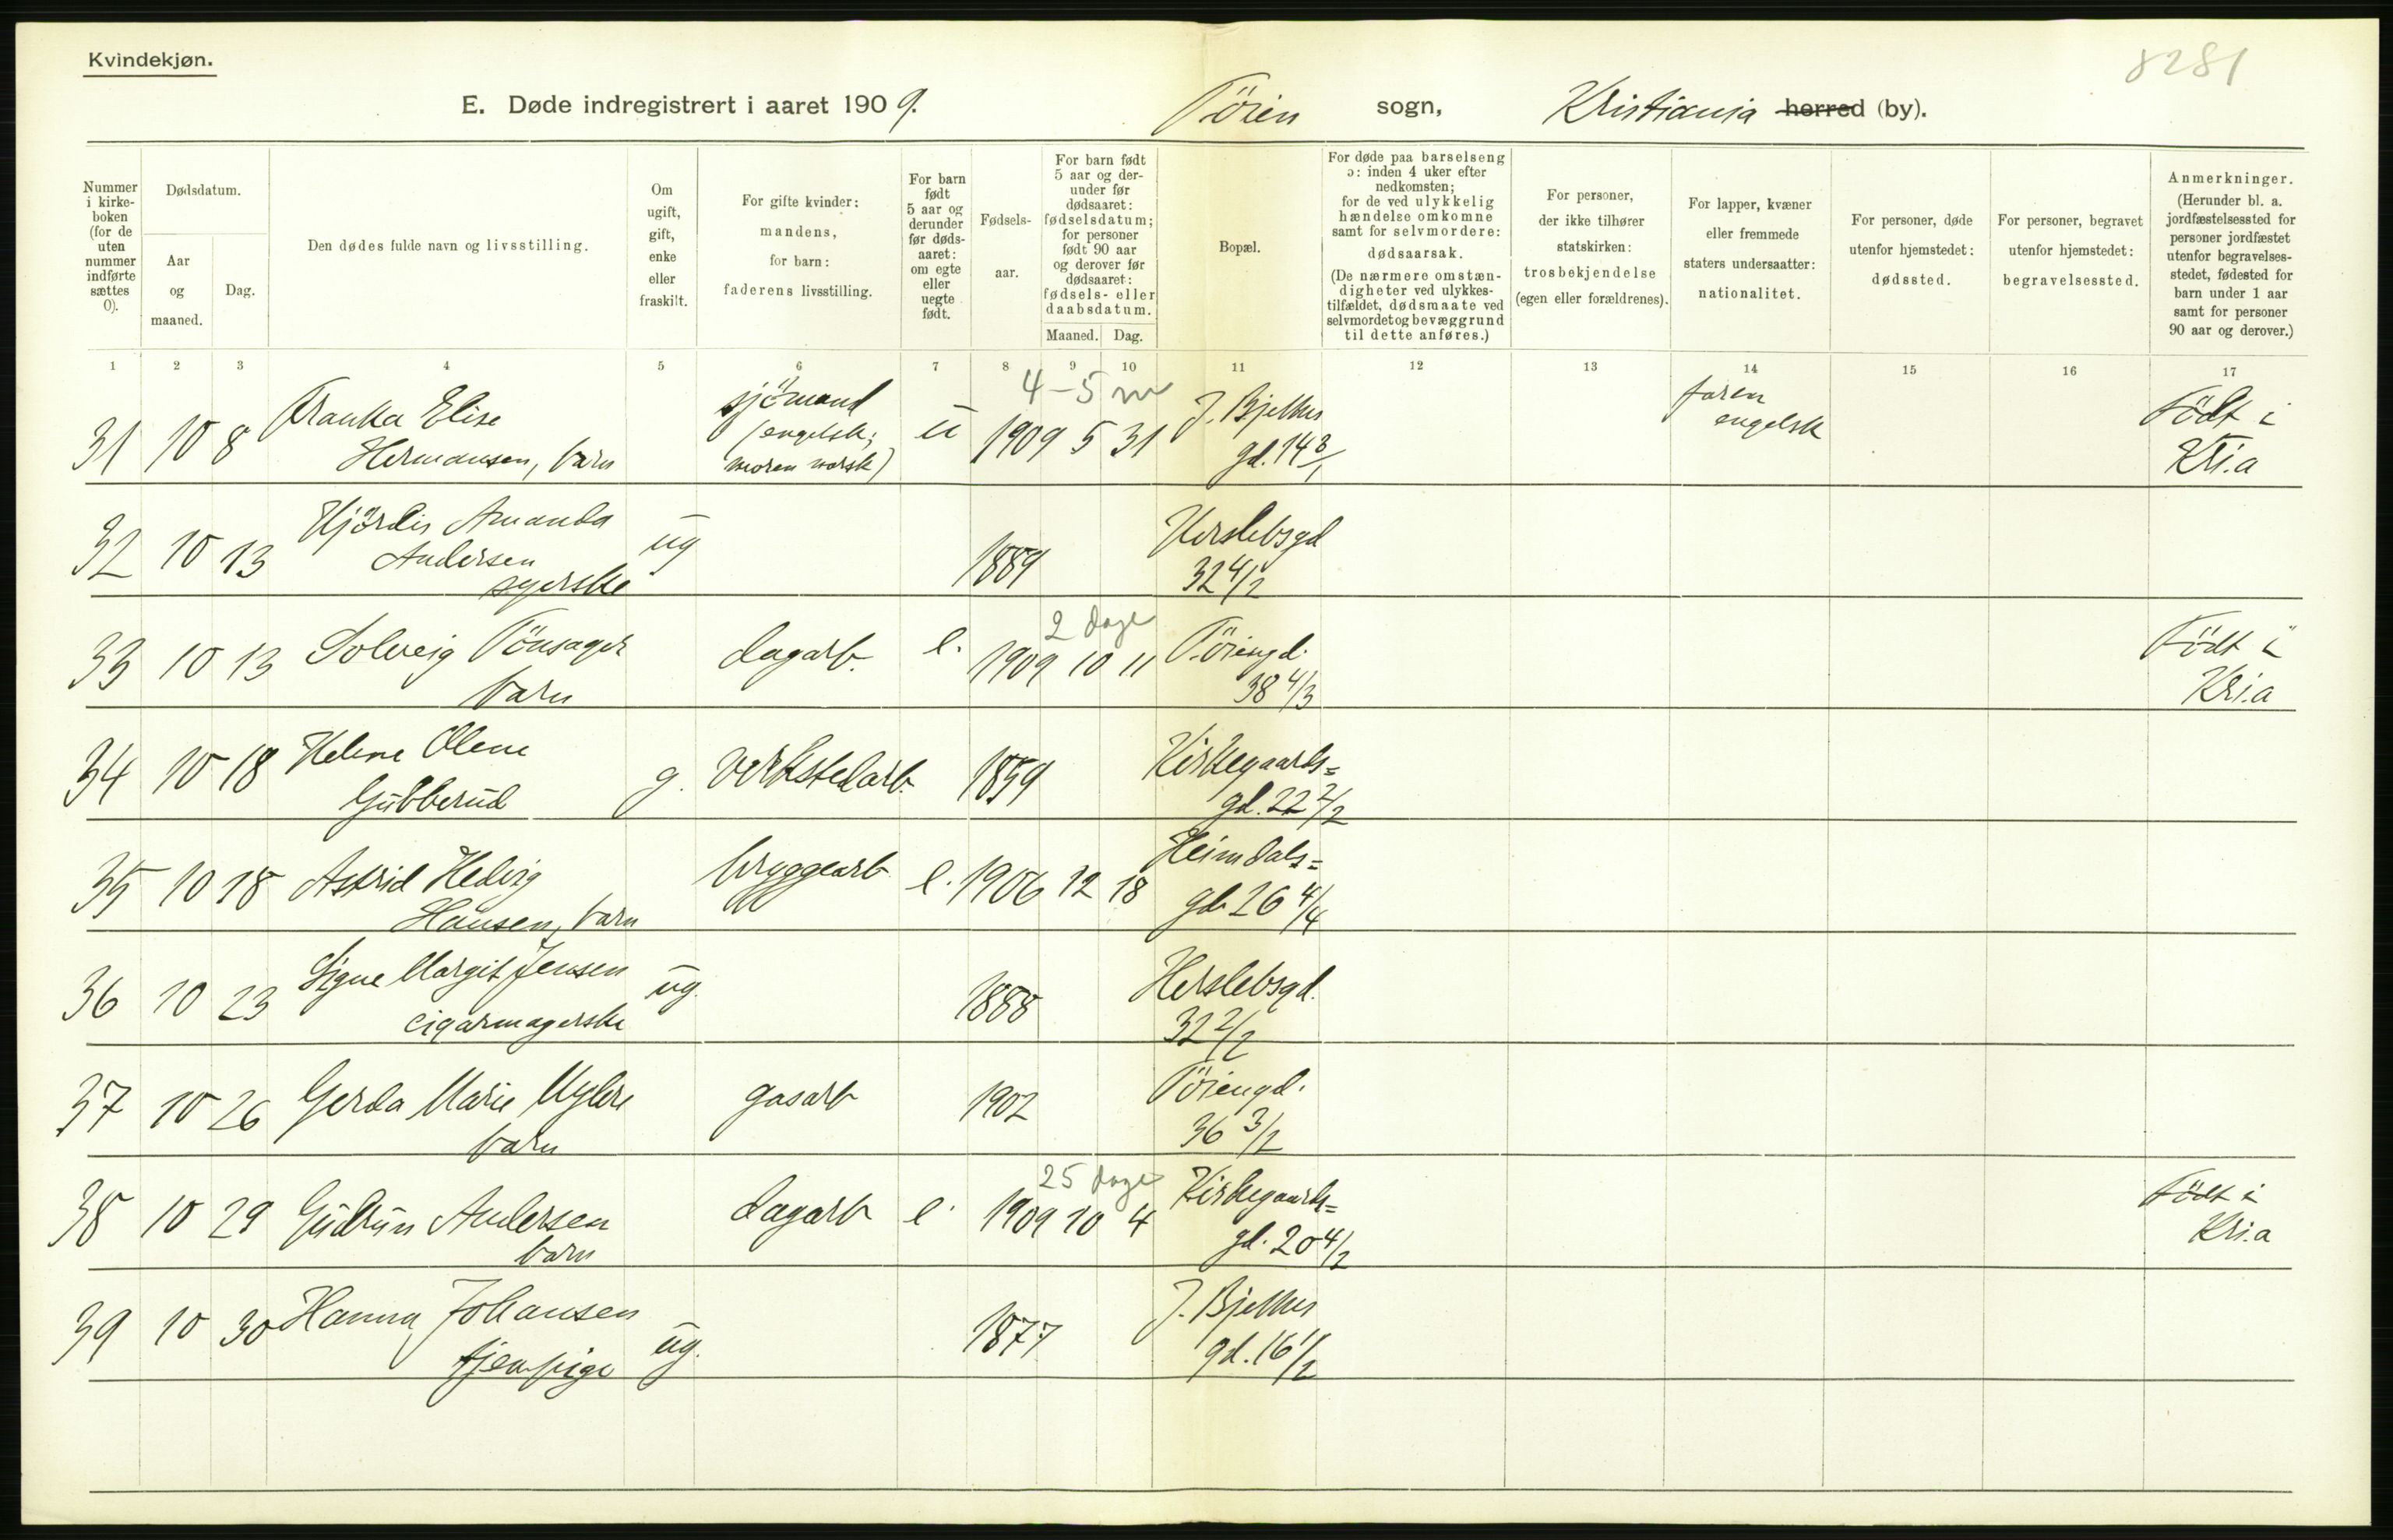 Kvindekjøn.
8281
E. Døde indregistrert i aaret 1909. Töien sogn, Kristiania herred (by).
Nummer i kirkeboken (for de uten nummer indførte sættes 0).
Dødsdatum.
Aar og maaned.
Dag.
Den dødes fulde navn og livsstilling.
Om ugift, gift, enke eller fraskilt.
For gifte kvinder: mandens, for barn: faderens livsstilling.
For barn født 5 aar og derunder før dødsaaret: om egte eller uegte født.
Fødselsaar.
For barn født 5 aar og derunder før dødsaaret: fødselsdatum; for personer født 90 aar og derover før dødsaaret: fødsels- eller daabsdatum.
Maaned. Dag.
Bopæl.
For døde paa barselseng ɔ: inden 4 uker efter nedkomsten; for de ved ulykkelig hændelse omkomne samt for selvmordere: dødsaarsak. (De nærmere omstændigheter ved ulykkestilfældet, dødsmaate ved selvmordet og bevæggrund til dette anføres.)
For personer, der ikke tilhører statskirken: trosbekjendelse (egen eller forældrenes).
For lapper, kvæner eller fremmede staters undersaatter: nationalitet.
For personer, døde utenfor hjemstedet: dødssted.
For personer, begravet utenfor hjemstedet: begravelsessted.
Anmerkninger. (Herunder bl. a. jordfæstelsessted for personer jordfæstet utenfor begravelsesstedet, fødested for barn under 1 aar samt for personer 90 aar og derover.)
1 2 3 4 5 6 7 8 9 10 11 12 13 14 15 16 17
4-5 m
31 10 8 Franka Elise Hermansen, barn sjömand (engelsk; moren norsk) u 1909 5 31 J. Bjelkes gd. 14 3/1 faren engelsk Födt i Kri.a
32 10 13 Hjördis Amanda Andersen syerske ug 1889 Herslebsgd 32 4/2
2 dage
33 10 13 Solveig Tönsager barn dagarb. e. 1909 10 11 Töiengd. 38 4/3 Födt i Kri.a
34 10 18 Helene Olene Gubberud g. verkstedarb. 1859 Kirkegaards= gd. 22 2/2
35 10 18 Astrid Hedvig Hansen, barn bryggearb e. 1906 12 18 Heimdals= gd 26 4/4
36 10 23 Signe Margit Jensen cigarmagerske ug. 1888 Herslebsgd. 32 2/2
37 10 26 Gerda Marie barn gasarb 1902 Töiengd. 36 3/2
25 dage
38 10 29 Gudrun Andersen barn dagarb e. 1909 10 4 Kirkegaards= gd. 20 4/2 Födt i Kri.a
39 10 30 Hanna Johansen tjen.pige ug. 1877 J. Bjelkes gd. 16 1/2